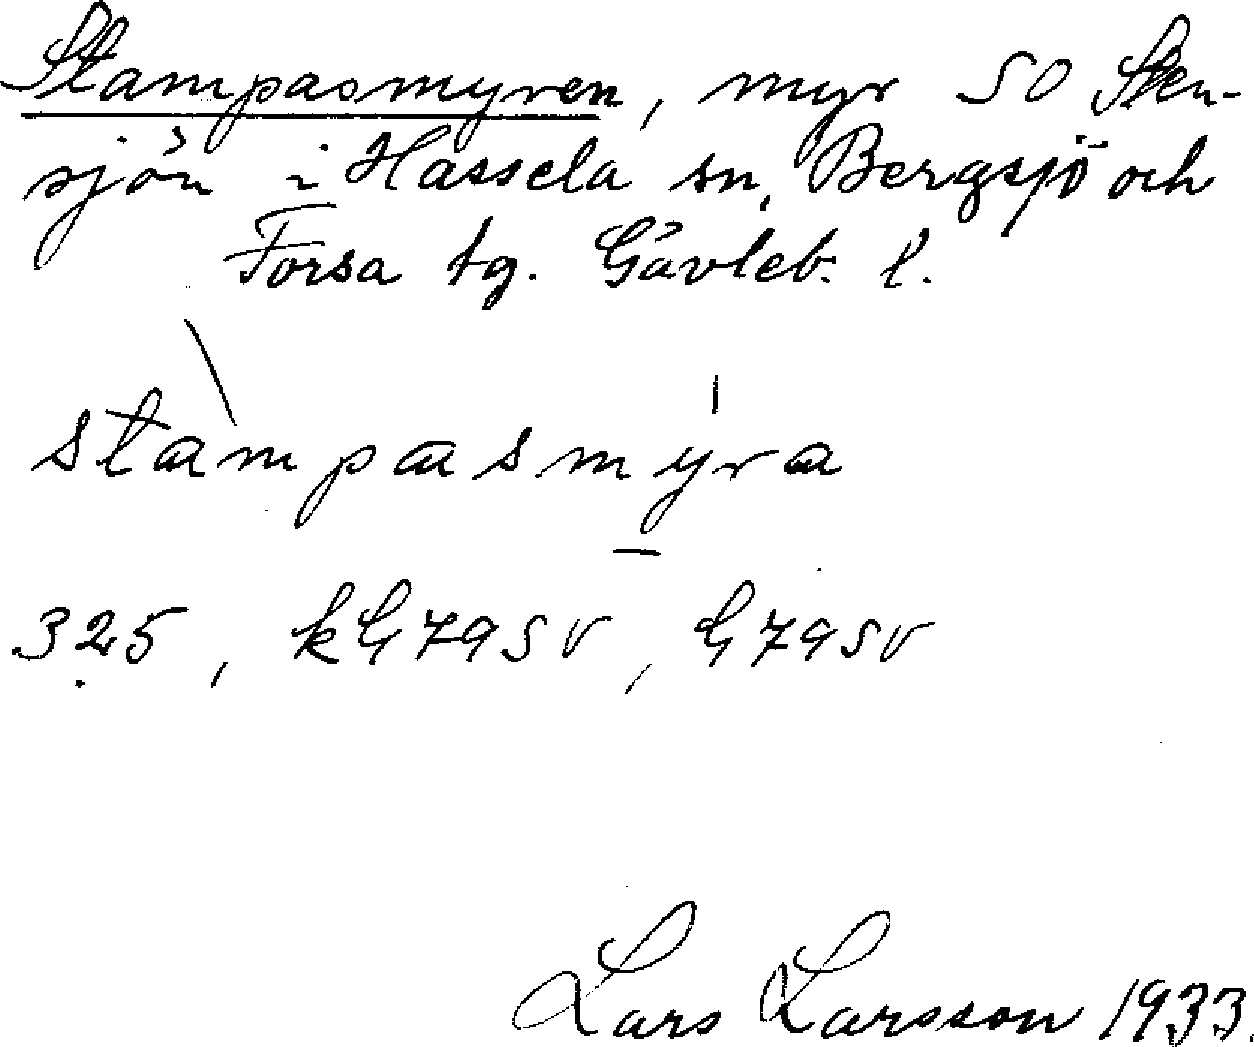 Stampasmyren, myr SO Sten-
sjön i Hassela sn, Bergsjö och
Forsa tg. Gävleb. l.
stampasmyra
325, kG79SV, G79SV
Lars Larsson 1933.